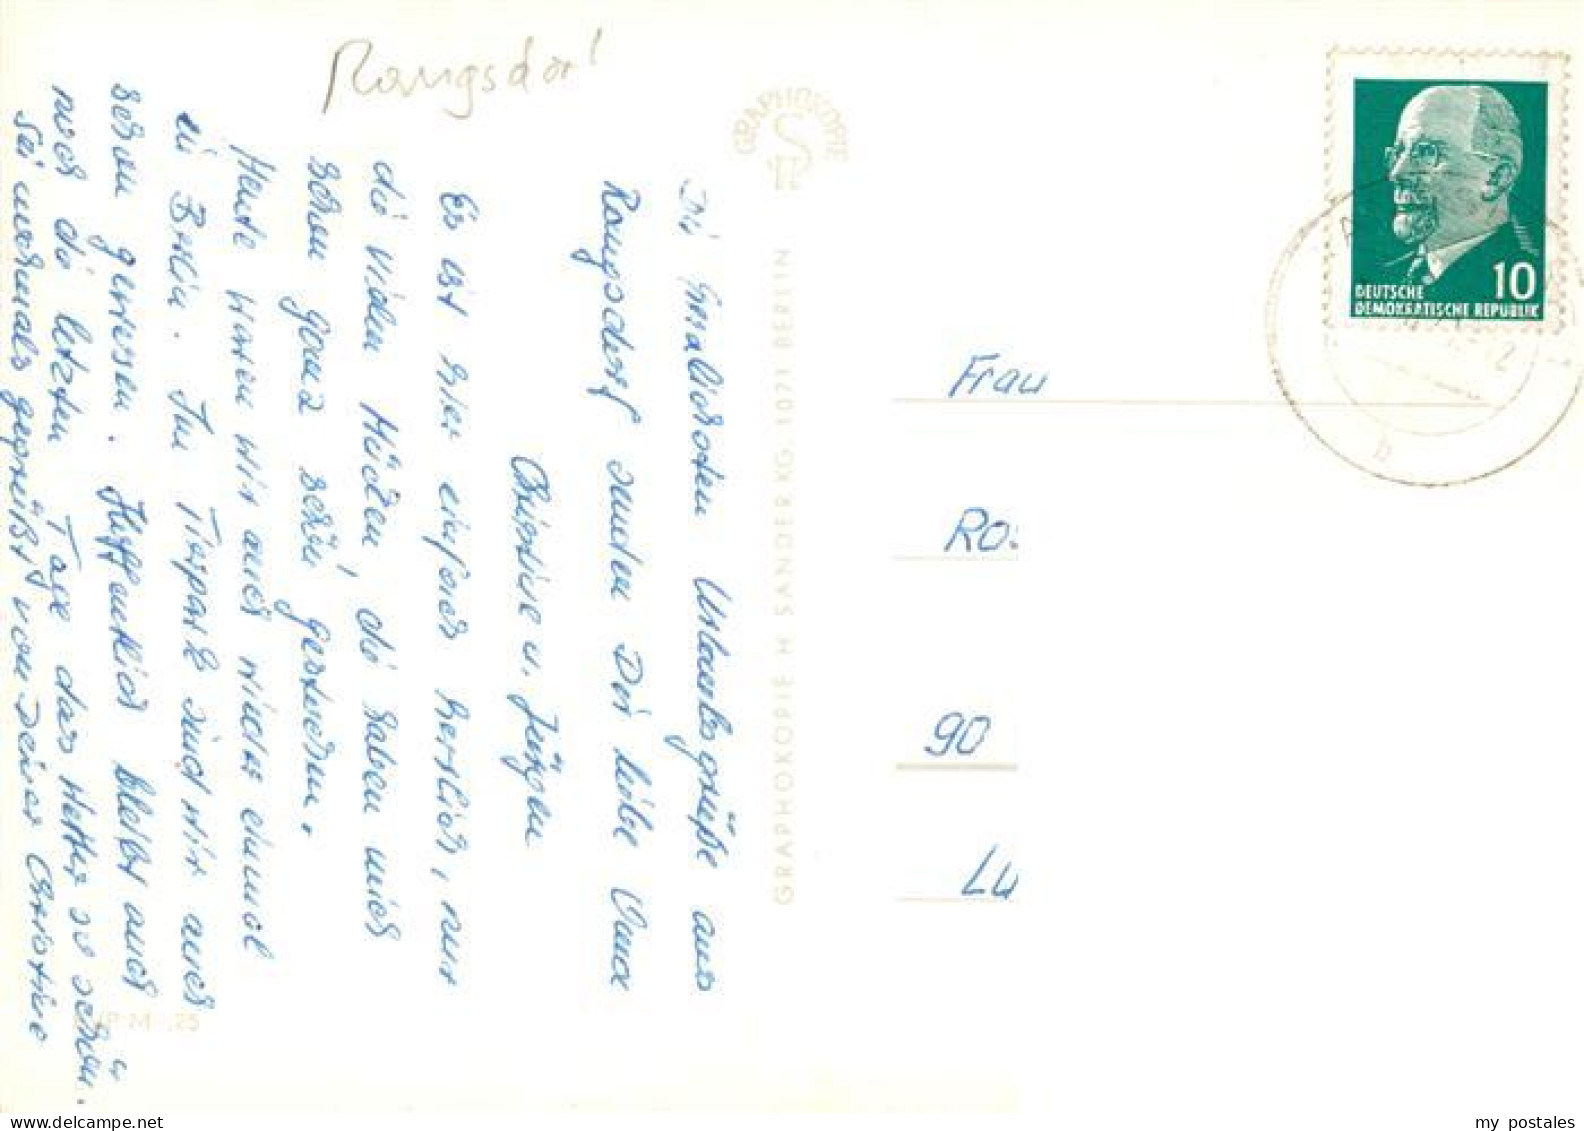 Rangsdorf
Die herzlichsten Urlaubsgrüße aus
Rangsdorf senden Dir liebe Oma
Christine u. Jürgen
Es ist hier einfach herrlich, nur
die vielen Mücken, die haben mich
schon ganz schön gestochen.
Heute waren wir auch wieder einmal
in Berlin. Im Tierpark sind wir auch
schon gewesen. Hoffentlich bleibt auch
noch die letzten Tage das Wetter so schön.
Sei nochmals gegrüßt von Deiner Christine
u.
GRAPHOKOPIE
GRAPHOKOPIE H SANDER KG 1071 BERLIN
10
DEUTSCHE
DEMOKRATISCHE REPUBLIK
b
Frau
Ro.
90
Lu
my postales